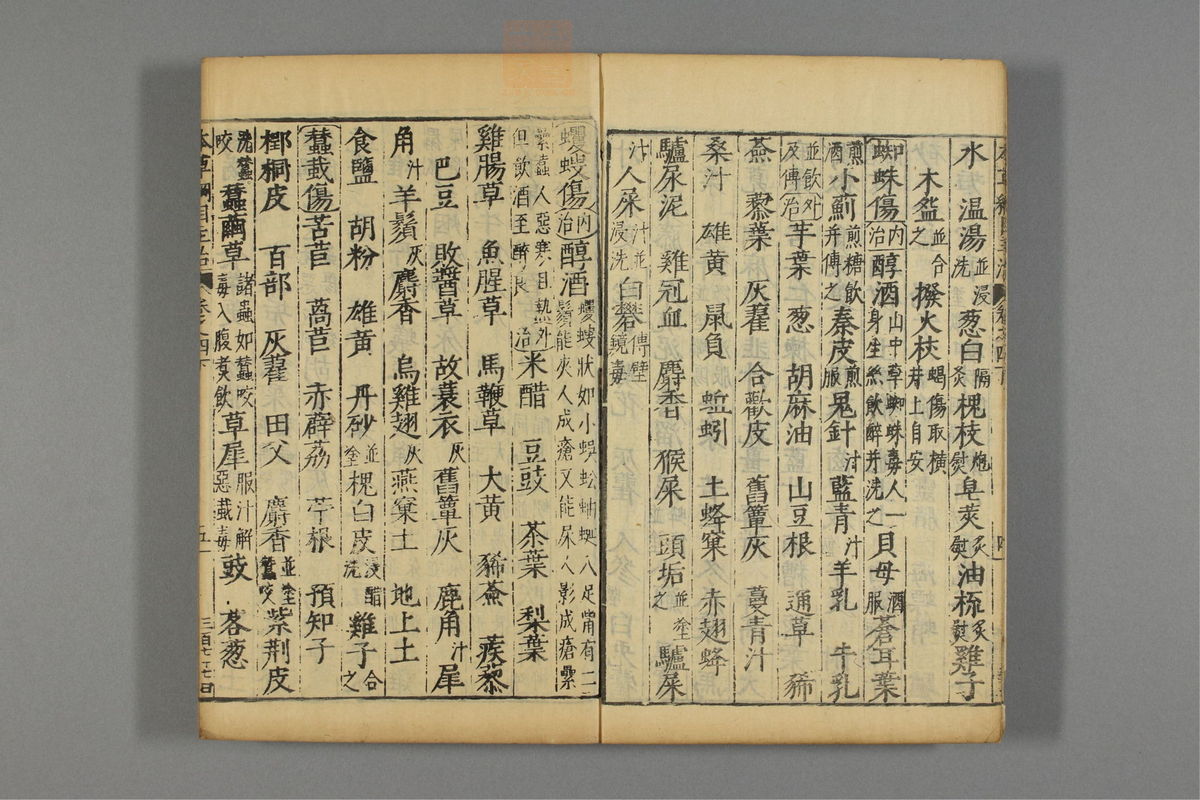 水 温湯並浸洗 葱白隔灸 槐枝炮熨 皂莢炙熨 油梳炙熨 雞子
木盌並合之 撥火杖蝎傷取橫井上自安
蜘蛛傷内治醇酒山中草蜘蛛毒人一身生絲飲醉并洗之 貝母酒服 蒼耳葉
煎酒 小薊煎糖飲并傅之 秦皮煎服 鬼針汁 藍青汁 羊乳 牛乳
並飲及傅外治芋葉 葱 胡麻油 山豆根 通草 豨
薟 藜葉 灰藋 合歡皮 舊簟灰 蔓青汁
桑汁 雄黃 鼠負 蚯蚓 土蜂窠 赤翅蜂
驢尿泥 雞冠血 麝香 猴屎 頭垢並塗之 驢屎
汁 人屎汁並傅浸洗 白礬 壁鏡毒
蠼螋傷内治醇酒蠼螋狀如小蜈蚣 八足觜有二鬚能夾人成瘡又能尿人影成瘡纍
紫蟲人惡寒且熱但飲酒至醉良外治米醋 豆豉 茶葉 梨葉
雞腸草 魚腥草 馬鞭草 大黃 豨薟 蒺藜
巴豆 敗醬草 故蓑衣灰 舊簟灰 鹿角汁 犀
角汁 羊鬚灰 麝香 烏雞翅灰 燕窠土 地上土
食鹽 胡粉 雄黃 丹砂並塗 槐白皮醋浸洗 雞子合之
蠶蛓傷苦苣 萵苣 赤薜荔 苧根 預知子
椰桐皮 百部 灰藋 田父 麝香並塗蠶咬 紫荆皮
洗蠶咬 蠶繭草諸蟲如蠶咬毒入腹煮飲 草犀服汁解惡蛓毒 豉 茖葱